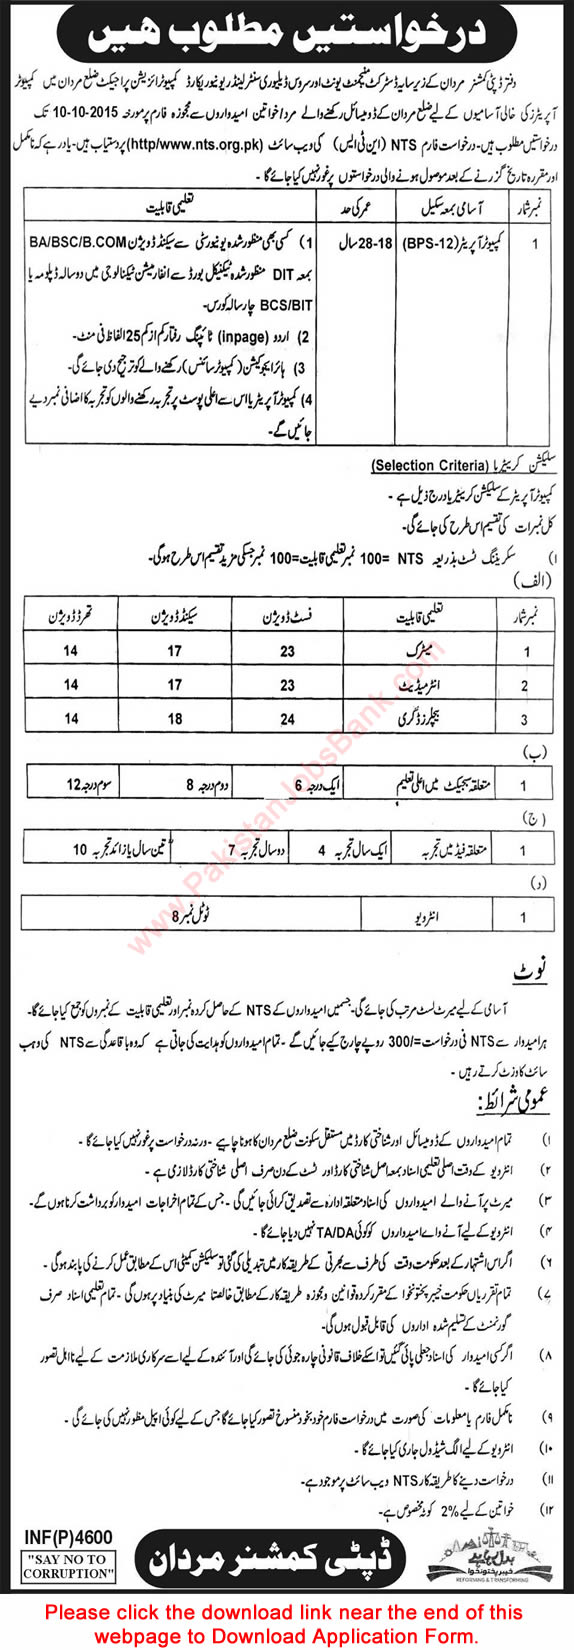 درخواستیں مطلوب ہیں
دفتر ڈپٹی کمشنر مردان کے زیر سایہ ڈسٹرکٹ منیجمنٹ یونٹ اور سروس ڈیلیوری سنٹر لینڈ ریونیو ریکارڈ کمپیوٹرائزیشن پراجیکٹ ضلع مردان میں کمپیوٹر
آپریٹرز کی خالی آسامیوں کے لیے ضلع مردان کے ڈومیسائل رکھنے والے مرد/خواتین امیدواروں سے مجوزہ فارم پر مورخہ 10-10-2015 تک
درخواستیں مطلوب ہیں۔ درخواست فارم NTS (این ٹی ایس) کی ویب سائٹ (http/www.nts.org.pk) پر دستیاب ہیں۔ یاد رہے کہ نامکمل
اور مقررہ تاریخ گزرنے کے بعد موصول ہونے والی درخواستوں پر غور نہیں کیا جائے گا۔
نمبر شمار آسامی بمعہ سکیل عمر کی حد تعلیمی قابلیت
1 کمپیوٹر آپریٹر (BPS-12) 18-28 سال 1) کسی بھی منظور شدہ یونیورسٹی سے سیکنڈ ڈویژن BA/BSC/B.COM
بمعہ DIT منظور شدہ ٹیکنیکل بورڈ سے انفارمیشن ٹیکنالوجی میں دو سالہ ڈپلومہ یا
BCS/BIT چار سالہ کورس۔
2) اردو (inpage) ٹائپنگ رفتار کم از کم 25 الفاظ فی منٹ۔
3) ہائر ایجوکیشن (کمپیوٹر سائنس) رکھنے والے کو ترجیح دی جائے گی۔
4) کمپیوٹر آپریٹر یا اس سے اعلی پوسٹ پر تجربہ رکھنے والوں کو تجربہ کا اضافی نمبر دیے
جائیں گے۔
سلیکشن کرینٹریا (Selection Criteria)
کمپیوٹر آپریٹر کے سلیکشن کریٹریا درج ذیل ہے۔
کل نمبرات کی تقسیم اس طرح کی جائے گی۔
۱) سکریننگ ٹسٹ بذریعہ NTS =100 نمبر تعلیمی قابلیت=100 نمبر جسکی مزید تقسیم اس طرح ہوگی۔
(الف)
نمبر شمار تعلیمی قابلیت فسٹ ڈویژن سیکنڈ ڈویژن تھرڈ ڈویژن
1 میٹرک 23 17 14
2 انٹرمیڈیٹ 23 17 14
3 بیچلرز ڈگری 24 18 14
(ب)
1 متعلقہ سبجیکٹ میں اعلی تعلیم ایک درجہ 6 دوم درجہ 8 سوم درجہ 12
(ج)
1 متعلقہ فیلڈ میں تجربہ ایک سال تجربہ 4 دو سال تجربہ 7 تین سال یا زائد تجربہ 10
(د)
1 انٹرویو ٹوٹل نمبر 8
نوٹ
آسامی کے لیے میرٹ لسٹ مرتب کی جائے گی۔ جسمیں امیدواروں کے NTS کے حاصل کردہ نمبر اور تعلیمی قابلیت کے نمبروں کو جمع کیا جائے گا۔
ہر امیدوار سے NTS فی درخواست =/300 روپے چارج کیے جائیں گے۔ تمام امیدواروں کو ہدایت کی جاتی ہے کہ وہ باقاعدگی سے NTS کی ویب
سائٹ کا وزٹ کرتے رہیں۔
عمومی شرائط:
۱) تمام امیدواروں کے ڈومیسائل اور شناختی کارڈ میں مستقل سکونت ضلع مردان کا ہونا چاہیے۔ ورنہ درخواست پر غور نہیں کیا جائے گا۔
۲) انٹرویو کے وقت اصلی تعلیمی اسناد بمعہ اصل شناختی کارڈ اور ٹسٹ کے دن صرف اصلی شناختی کارڈ لازی ہے۔
۳) میرٹ پر آنے والے امیدواروں کی اسناد متعلقہ ادارہ سے تصدیق کرائی جائیں گی۔ جس کے تمام اخراجات امیدوار کو برداشت کرنا ہوں گے۔
۴) انٹرویو کے لیے آنے والے امیدواروں کو کوئی TA/DA نہیں دیا جائے گا۔
۶) اگر اس اشتہار کے بعد حکومت وقت کی طرف سے بھرتی کے طریقہ کار میں تبدیلی کی گئی تو سلیکشن کمیٹی اس کے مطابق عمل کرنے کی پابند ہوگی۔
۷) تمام تقرریاں حکومت خیبر پختونخوا کے مقرر کردہ قوانین و مجوزہ طریقہ کار کے مطابق خالصتا میرٹ کی بنیاد پر ہوں گی۔ تمام تعلیمی اسناد صرف
گورنمنٹ کے تسلیم شدہ اداروں کی قابل قبول ہوں گی۔
۸) اگر کسی امیدوار کی اسناد جعلی پائی گئیں تو اسکے خلاف قانونی چارہ جوئی کی جائے گی اور آئندہ کے لیے اسے سرکاری ملازمت کے لیے نااہل تصور
کیا جائے گا۔
۹) نامکمل فارم یا معلومات کی صورت میں درخواست فارم خود بخود منسوخ تصور کیا جائے گا جس کے لیے کوئی اپیل منظور نہیں کی جائے گی۔
۱۰) انٹرویو کے لیے الگ شیڈول جاری کیا جائے گا۔
۱۱) درخواست دینے کا طریقہ کار NTS ویب سائٹ پر موجود ہے۔
۱۲) خواتین کے لیے 2% کوٹہ مخصوص ہے۔
INF(P)4600
"SAY NO TO
CORRUPTION"
ڈپٹی کمشنر مردان
خیبر پختونخوا
REFORMING & TRANSFORMING
www.PakistanJobsBank.com
Please click the download link near the end of this
webpage to Download Application Form.